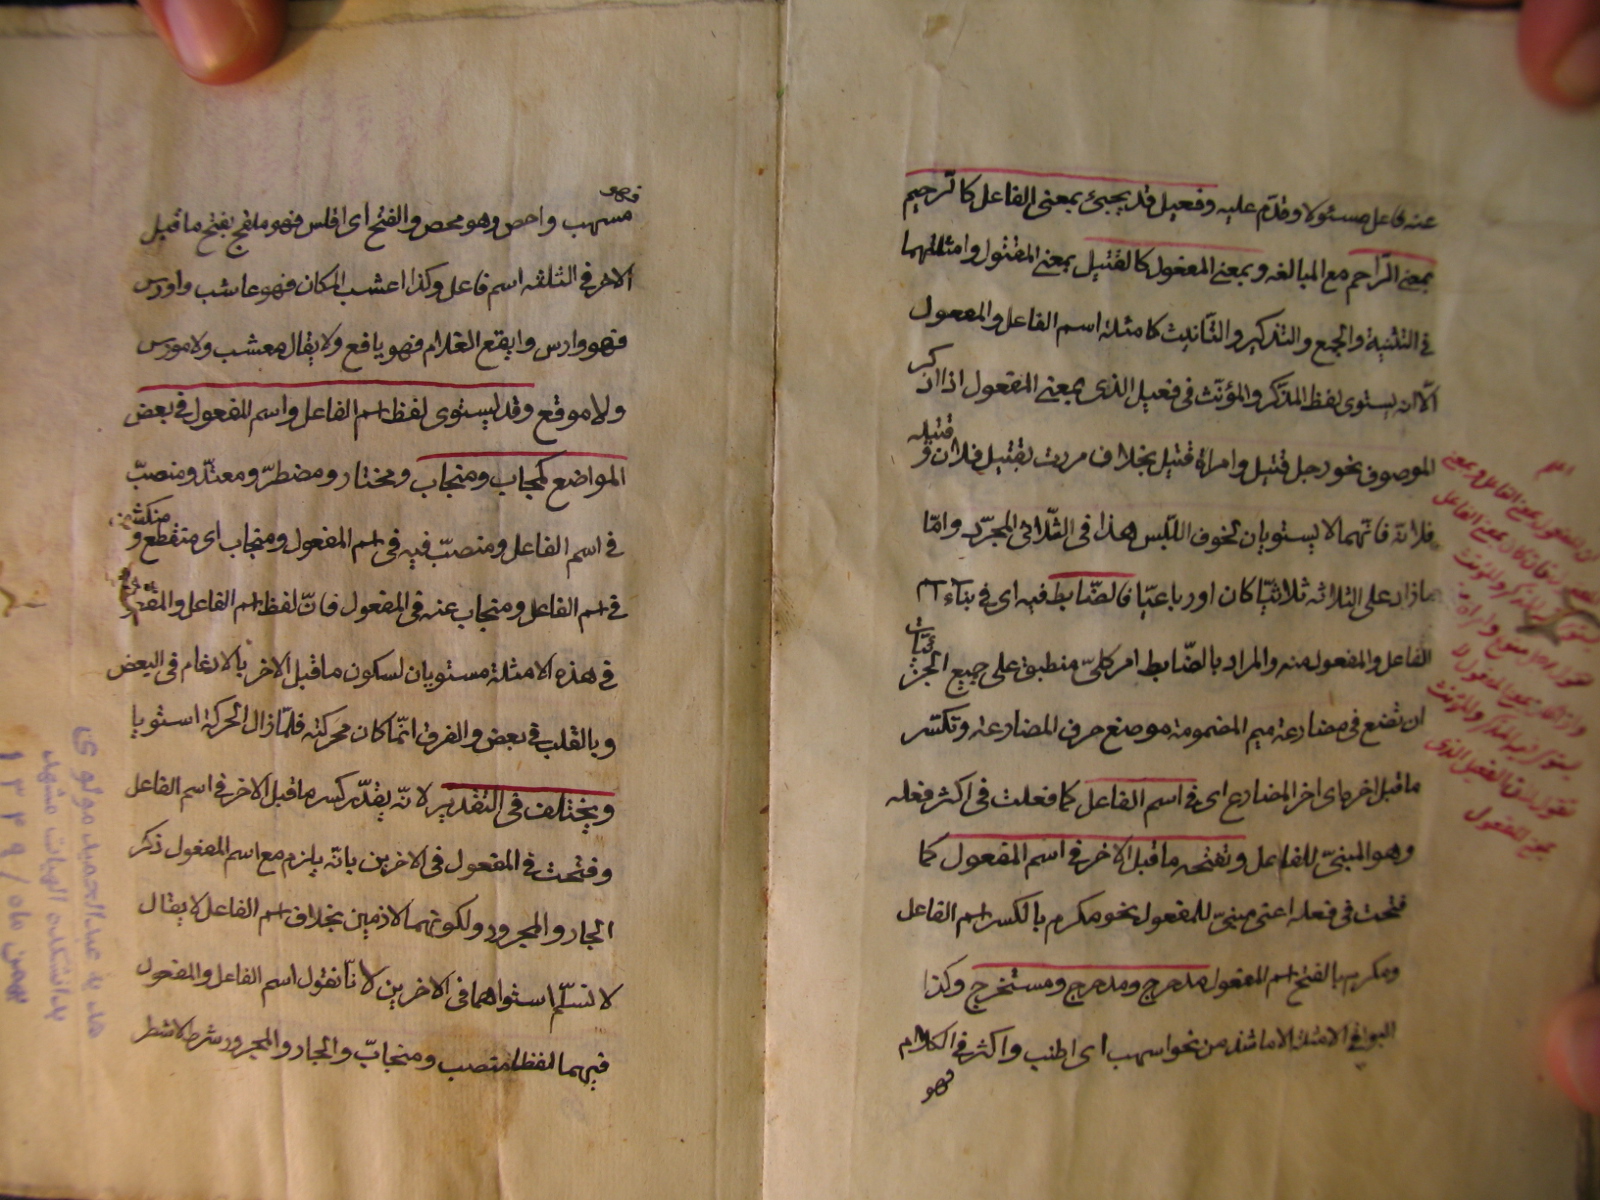 عنه فاعل مسئولا وقدّم عليه وفعيل قد يجيئ بمعنى الفاعل كالرّحيم
بمعنى الرّاحم مع المبالغه وبمعنى المفعول كالقتيل بمعنى المقتول وامثلتهما
فى التثنية والجمع والتذكير والتّأنيث كامثلة اسم الفاعل والمفعول
الّا انه يستوى لفظ المذّكر والمؤنّث فى فعيل الذى بمعنى المفعول اذا ذكر
الموصوف نحو رجل قتيل وامراة قتيل بخلاف مررت بقتيل فلان و قتيله
فلانة فانّهما لا يستويان لخوف اللّبس هذا فى الثّلاثى المجرّد وامّا
مازاد على الثلاثه ثلاثيّا كان او رباعيّا فالضّابط فيه اى فى بناء اسم
الفاعل والمفعول منه والمراد بالضّابط امر كلىّ منطبق على جميع الجزئيّات
ان تضع فى مضارعة ميم المضمومة موضع حرف المضارعة وتكسّر
ماقبل اخره اى اخر المضارع اى فى اسم الفاعل كما فعلت فى اكثر فعله
وهو المبنىّ للفاعل وتفتحه ماقبل الاخر فى اسم المفعول كما
فتحت فى فعله اعنى مبنىّ للمفعول نحو مكرم بالكسر اسم الفاعل
ومكرم بالفتح اسم المفعول مدحرج ومدحرج ومستخرج وكذا
البواقى الامثلة الا ما شذ من نحو اسهب اى اطنب واكثر فى الكلام
فهو
فهو
مسهب واحصن وهو محصن والفتح اى افلس فهو ملفج بفتح ماقبل
الاخر فى الثلثه اسم فاعل وكذا اعشب المكان فهو عاشب واورس
فهو وارس وايفع الغلام فهو يافع ولا يقال معشب ولا مورس
ولا موقع وقد يستوى لفظ اسم الفاعل واسم المفعول فى بعض
المواضع كمجاب ومنجاب ومختار ومضطرّ ومعتدّ ومنصبّ
فى اسم الفاعل ومنصبّ فيه فى اسم المفعول ومنجاب اى منقطع و منكشف
فى اسم الفاعل ومنجاب عنه فى المفعول فانّ لفظ اسم الفاعل والمفعول
فى هذه الامثلة مستويان لسكون ماقبل الاخر بالادغام فى البعض
وبالقلب فى بعض والفرق انّما كان محركته فلمّا زال الحركة استويا
ويختلف فى التقدير لانّه يقدّر كسر ماقبل الاخر فى اسم الفاعل
وفتحت فى المفعول فى الاخرين بانّه يلزم مع اسم المفعول ذكر
الجار والمجرور ولكونهما لازمين بخلاف اسم الفاعل لا يقال
لا نسلّم استواهما فى الاخرين لانّا نقول اسم الفاعل والمفعول
فيهما لفظا منصب ومنجابّ والجار والمجرور شرط لا شطر
هديه عبدالحميد مولوى
بدانشكده الهيات مشهد
بهمن ماه / ١٣٤٩